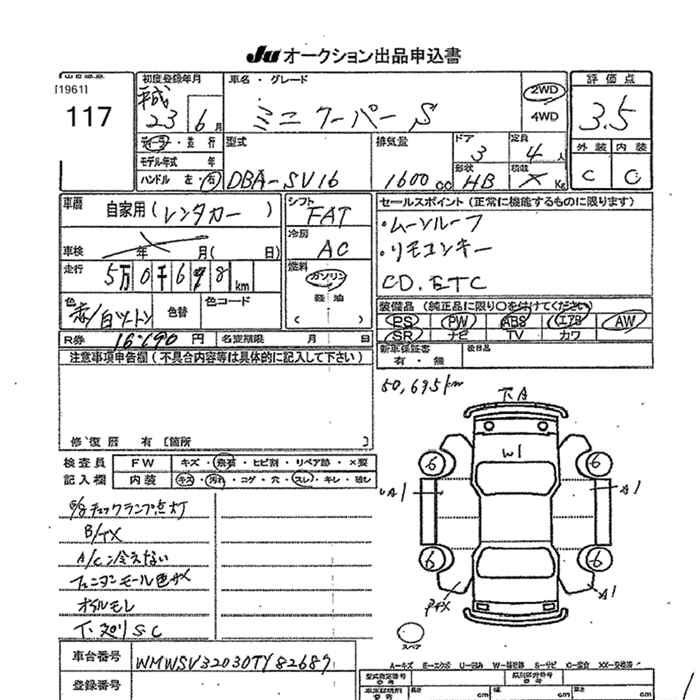 Ju オークション出品申込書
[1961]
117
初度登録年月
平成 23 6 月
車名・グレード
ミニクーパー S
2WD
4WD
評価点
3.5
外装 内装
C C
ディーラー・並行
モデル年式 年
ハンドル 左・右
型式
DBA-SV16
排気量
1600 cc
ドア
3
定員
4 人
形状
HB
積載
X Kg
車歴 自家用(レンタカー)
車検 年 月( 日)
走行 5万 0千 6 9 8 km
色 赤/白ツートン
色替
色コード
シフト
FAT
冷房
AC
燃料
ガソリン
軽油
( )
セールスポイント(正常に機能するものに限ります)
・ムーンルーフ
・リモコンキー
CD. ETC
装備品(純正品に限り○を付けてください)
PS PW ABS エアB AW
SR ナビ TV カワ
R券 16.190 円 名変期限 月 日
新車保証書
有・無
後日品
注意事項申告欄(不具合内容等は具体的に記入して下さい)
修復歴 有 [箇所 ]
50,695km
下A
W1
6
6
A1
A1
6
6
A1
スペア
検査員 FW キズ・飛石・ヒビ割・リペア跡・X要
記入欄 内装 キズ・汚れ・コゲ・穴・スレ・キレ・欠し
チェックランプ点灯
A/C冷えない
オイルモレ
下廻りSC
車台番号 WMWSV32030TY82689
登録番号
cm
cm
cm